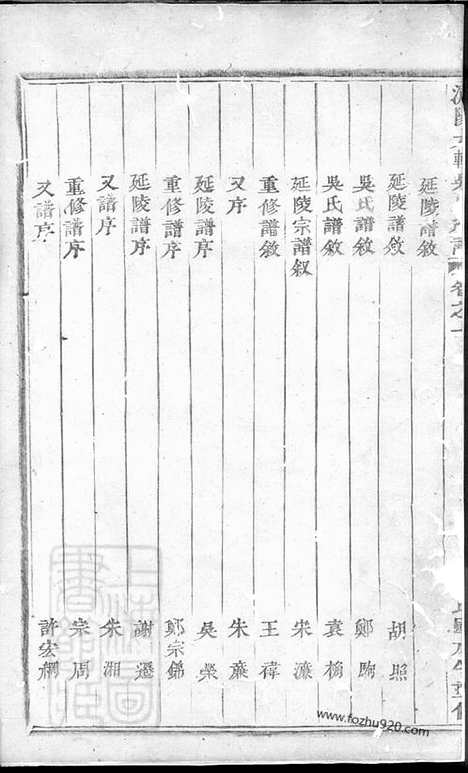 卷之一
延陵譜敘
延陵譜敘 胡照
吳氏譜敘 鄭
吳氏譜敘 袁桷
延陵宗譜叙 宋濂
重修譜敘 王禕
又序 朱廉
延陵譜序 吳榮
重修譜序 鄭宗錦
延陵譜序 謝遷
又譜序 朱湘
重修譜序 宗周
又譜序 許宏綱
上海圖書館藏
www.fozhu920.com